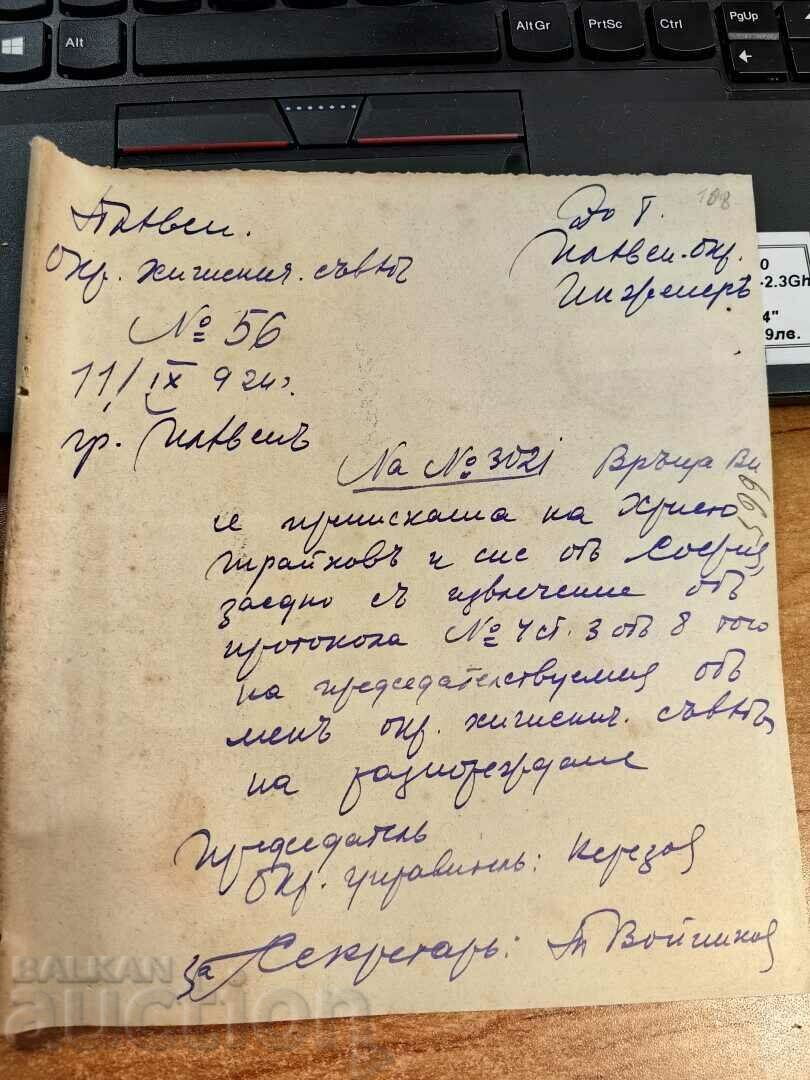 Плѣвен.
Окр. хигиенич. съвѣтъ
№ 56
11/IX 924г.
гр. Плѣвенъ
108
До Г.
Плѣвен. окр.
Инженеръ
На № 3021 Връща Ви
се на Христо
Трайковъ и сие отъ София,
заедно съ извлечение отъ
протокола № 4 ст. 3 отъ 8 того
на председателствуемия отъ
менъ окр. хигиенич. съвѣтъ,
на разпореждане
Председатель
Окр. управитель:
за Секретарь:
599
Alt
Alt Gr
PrtSc
Ctrl
PgUp
0
-2.3Gh
4"
9лв.
BALKAN
auction